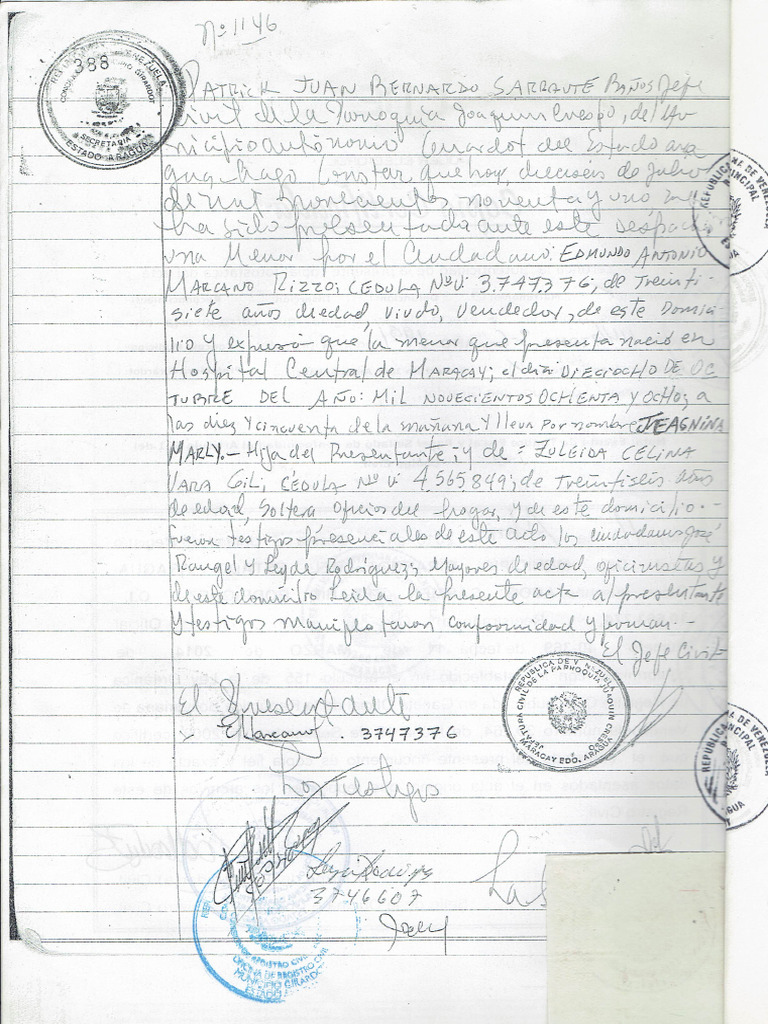 Nº 1146
388
REPUBLICA DE VENEZUELA
GIRARDOT
SECRETARIA
ESTADO ARAGUA
PATRICK JUAN BERNARDO SARRAUTE BAÑOS Jefe
Civil de la Parroquia Joaquin Crespo, del Mu-
nicipio autónomo Girardot del Estado Ara
gua, hago constar que hoy, dieciseis de Julio
de mil novecientos noventa y uno me
ha sido presentada ante este Despacho
una Menor por el Ciudadano: EDMUNDO ANTONIO
MARCANO RIZZO; CEDULA Nº V: 3.747.376; de Treinti-
siete años de edad, viudo, vendedor, de este Domici-
lio y expuso que la menor que presenta nació en
Hospital Central de MARACAY; el dia: DIECIOCHO DE OC
TUBRE DEL AÑO: MIL NOVECIENTOS OCHENTA Y OCHO; a
las diez y cincuenta de la mañana y lleva por nombre JEAGNINA
MARLY.- Hija del Presentante; y de: ZULEIDA CELINA
VARA GIL; CÉDULA Nº V: 4.565.849; de Treintiseis años
de edad, Soltera, Oficios del hogar, y de este domicilio.-
Fueron testigos presenciales de este acto los ciudadanos José
Rangel y Leyde Rodríguez; Mayores de edad, oficinistas y
de este domicilio Leida la presente acta al presentante
y testigos manifestaron conformidad y firman.-
El Jefe Civil
El Presentante
EMarcano. 3747376
REPUBLICA DE VENEZUELA
JEFATURA CIVIL DE LA PARROQUIA JOAQUIN CRESPO
MARACAY EDO. ARAGUA
Los testigos
3746607
La S
REGISTRO CIVIL
OFICINA DE REGISTRO CIVIL
MUNICIPIO GIRARDOT
REPUBLICA DE VENEZUELA
PRINCIPAL
REPUBLICA DE VENEZUELA
PRINCIPAL